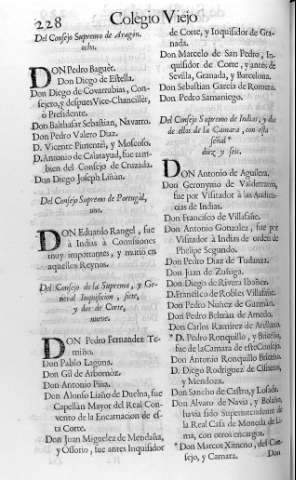 228 Colegio Viejo
Del Consejo Supremo de Aragón,
ocho.
DON Pedro Baguer.
Don Diego de Estella.
Don Diego de Covarrubias, Con-
sejero, y despues Vice-Chanciller,
ò Presidente.
Don Balthasar Sebastian, Navarro.
Don Pedro Valero Diaz.
D. Vicente Pimentel, y Moscoso.
D. Antonio de Calatayud, fue tam-
bien del Consejo de Cruzada.
Don Diego Joseph Liñan.
Del Consejo Supremo de Portugàl,
uno.
DON Eduardo Rangel, fue
à Indias à Comissiones
muy importantes, y murió en
aquellos Reynos.
Del Consejo de la Suprema, y Ge-
neral Inquisicion, siete,
y dos de Corte,
nueve.
DON Pedro Fernandez Te-
miño.
Don Pablo Laguna.
Don Gil de Arbornóz.
Don Antonio Piña.
Don Alonso Liaño de Buelna, fue
Capellàn Mayor del Real Con-
vento de la Encarnacion de es-
ta Corte.
Don Juan Miguelez de Mendaña,
y Ossorio, fue antes Inquisidor
de Corte, y Inquisidor de Gra-
nada.
Don Marcelo de San Pedro, In-
quisidor de Corte, y antes de
Sevilla, Granada, y Barcelona.
Don Sebastian Garcia de Romera.
Don Pedro Samaniego.
Del Consejo Supremo de Indias, y los
de ellos de la Camara, con esta
señal *
diez y seis.
DON Antonio de Aguilera.
Don Geronymo de Valderrama,
fue por Visitador à las Audien-
cias de Indias.
Don Francisco de Villafañe.
Don Antonio Gonzalez, fue por
Visitador à Indias de orden de
Phelipe Segundo.
Don Pedro Diaz de Tudanza.
Don Juan de Zuñiga.
Don Diego de Rivera Ibañez.
D. Francisco de Robles Villafañe.
Don Pedro Nuñez de Guzmàn.
Don Pedro Beltràn de Arnedo.
Don Carlos Ramirez de Arellano.
* D. Pedro Ronquillo, y Briceño,
fue de la Camara de este Consejo.
Don Antonio Ronquillo Briceño.
D. Diego Rodriguez de Cisneros,
y Mendoza.
Don Sancho de Castro, y Losada.
Don Alvaro de Navia, y Bolaño,
havia sido Superintendente de
la Real Casa de Moneda de Li-
ma, con otros encargos.
* Don Marcos Ximeno, del Con-
sejo, y Camara.
Don